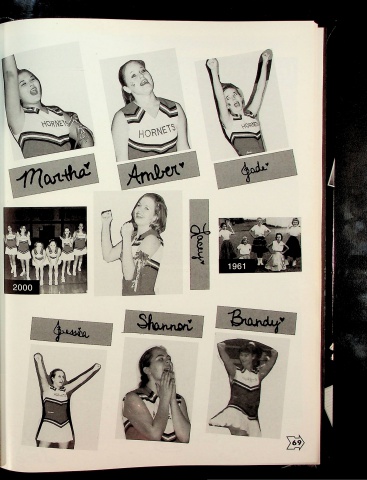 HORNETS
HORNETS
HORNETS
Martha
Amber
Jade
Lacey
2000
1961
Jessica
Shannon
Brandy
69